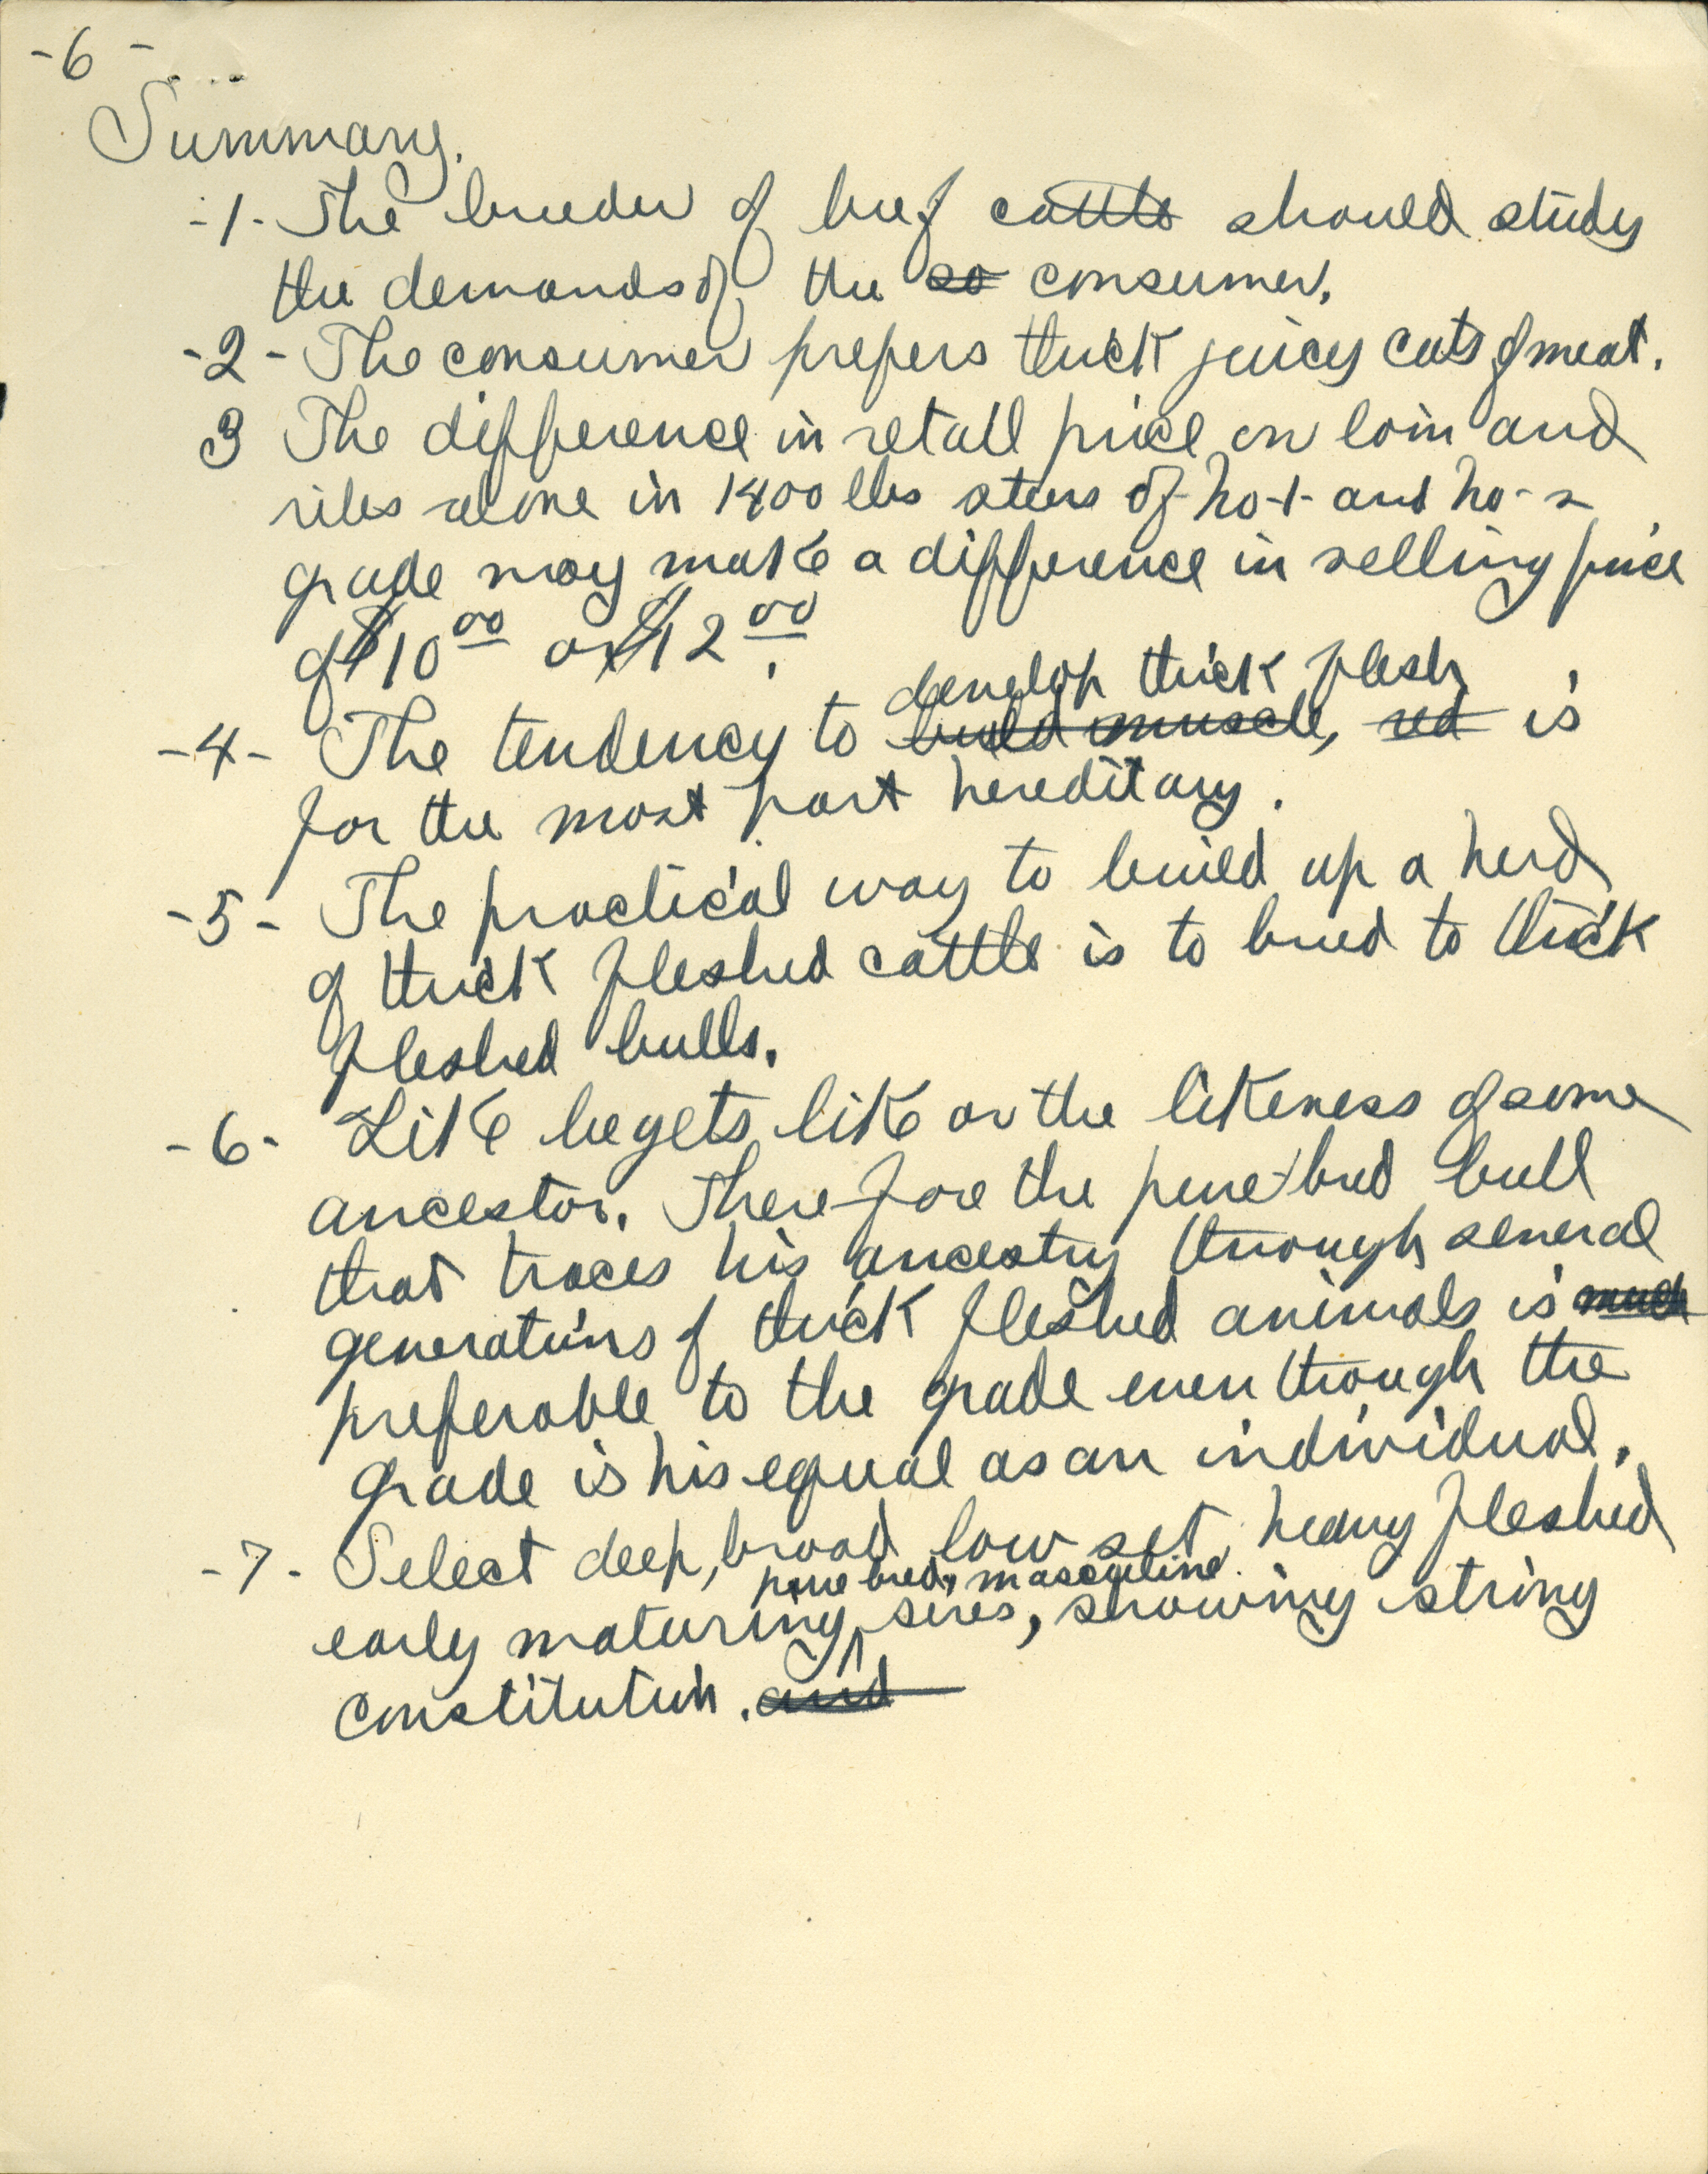 -6-
Summary.
-1- The breeder of beef cattle should study
the demands of the so consumer.
-2- The consumer prefers thick juicy cuts of meat.
3 The difference in retail price on loin and
ribs alone in 1400 lbs steers of no-1- and no-2
grade may make a difference in selling price
of $10 00 or $12 00.
develop thick flesh
-4- The tendency to build muscle, red is
for the most part hereditary.
-5- The practical way to build up a herd
of thick fleshed cattle is to breed to thick
fleshed bulls.
-6- Like begets like or the likeness of some
ancestor. Therefore the pure bred bull
that traces his ancestry through several
generations of thick fleshed animals is much
preferable to the grade even though the
grade is his equal as an individual.
-7- Select deep, broad low set, heavy fleshed
pure bred, masculine
early maturing sires, showing strong
constitution. and